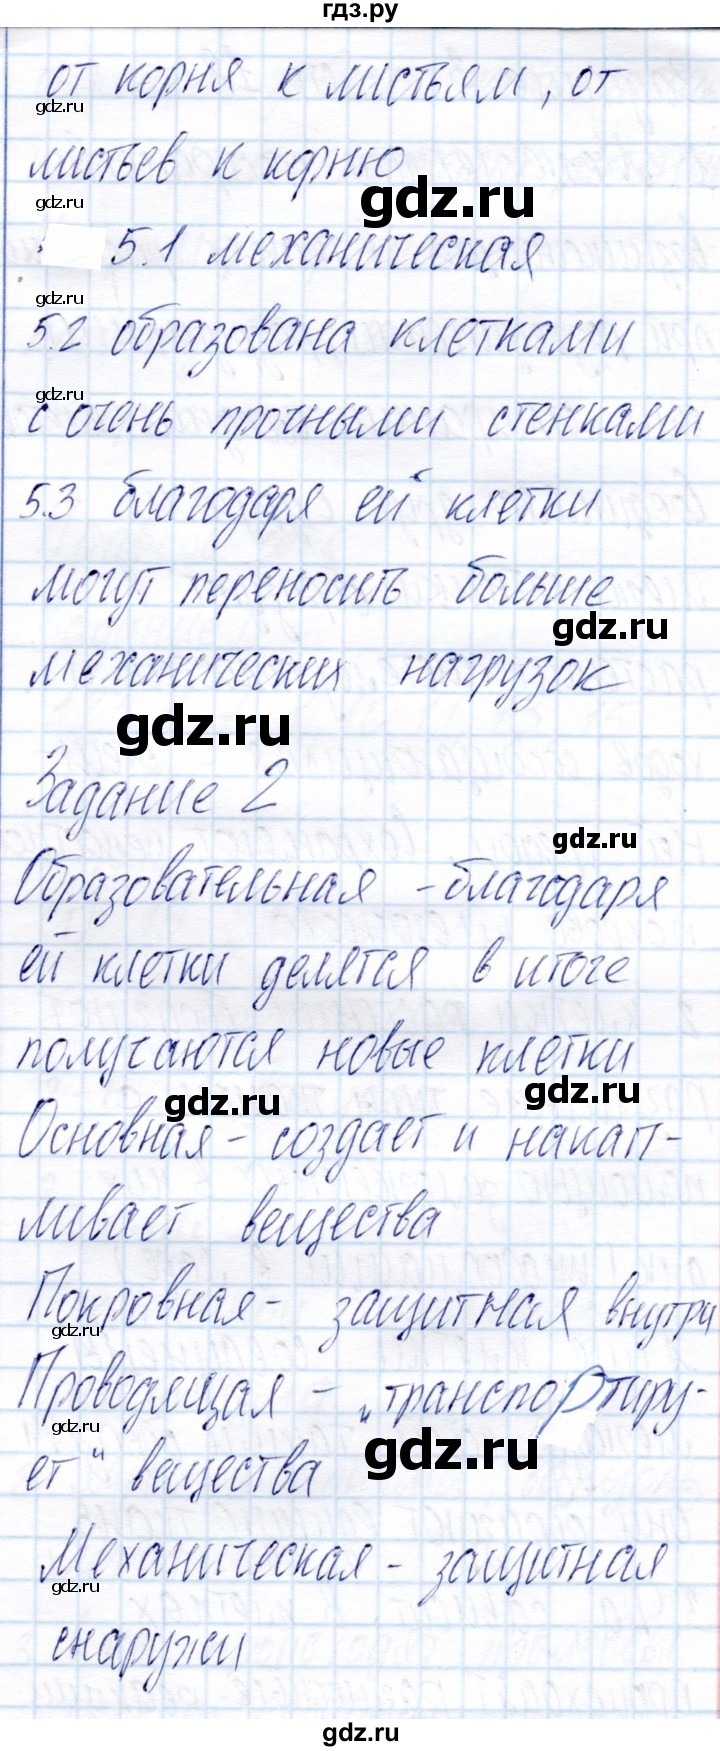 гдз.ру
от корня к листьям, от
gdz.ru
листьев к корню
gdz.ru
5.1 механическая
gdz.ru
5.2 образована клетками
gdz.ru
с очень прочными стенками
5.3 благодаря ей клетки
gdz.ru
могут переносить больше
gdz.ru
механических нагрузок
gdz.ru
Задание 2
gdz.ru
Образовательная - благодаря
ей клетки делятся в итоге
получаются новые клетки
gdz.ru
gdz.ru
Основная - создает и накап-
ливает вещества
Покровная - защитная внутри
gdz.ru
Проводящая - „транспортиру-
gdz.ru
ет“ вещества
gdz.ru
Механическая - защитная
gdz.ru
снаружи
gdz.ru